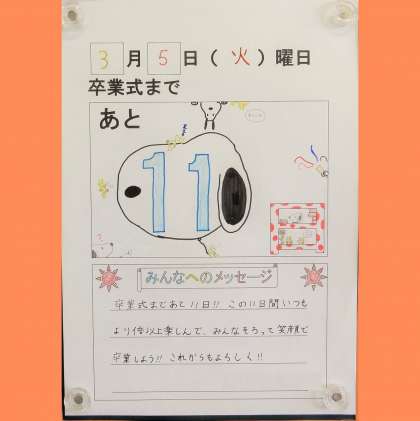 3月5日(火)曜日
卒業式まで
あと
11
みんなへのメッセージ
卒業式まであと11日!! この11日間いつも
より倍以上楽しんで、みんなそろって笑顔で
卒業しよう!! これからもよろしく!!